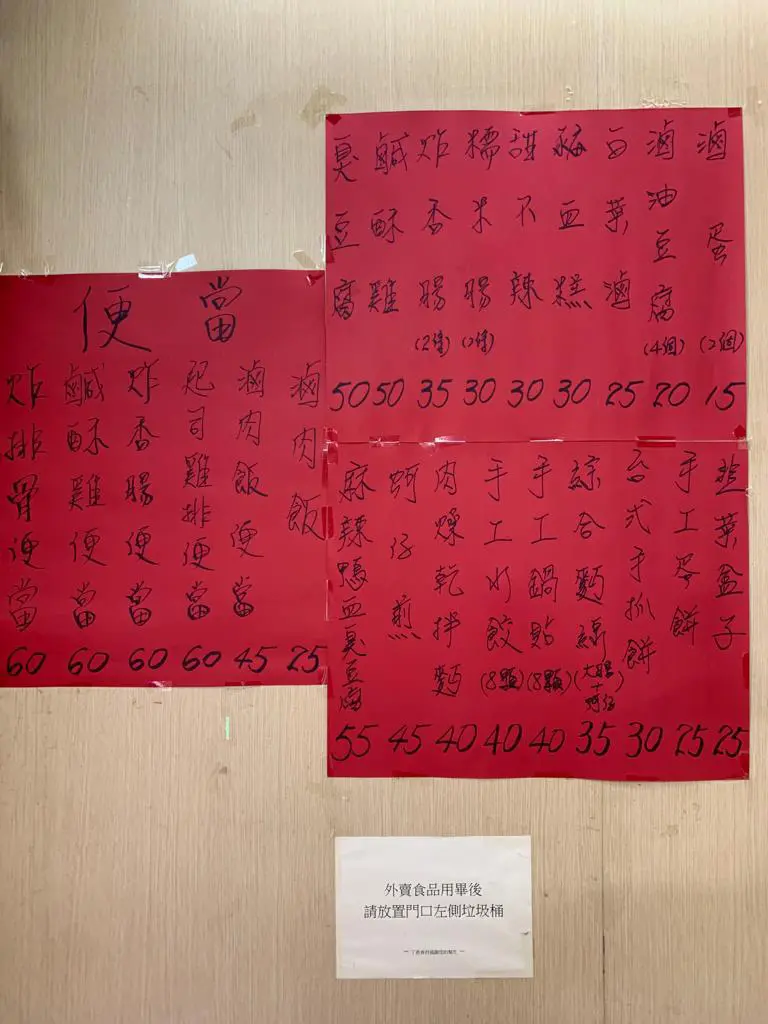 便當
炸排骨便當 60
鹹酥雞便當 60
炸香腸便當 60
起司雞排便當 60
滷肉飯便當 45
滷肉飯 25
臭豆腐 50
鹹酥雞 50
炸香腸(2條) 35
糯米腸(2條) 30
甜不辣 30
豬血糕 30
白菜滷 25
滷油豆腐(4個) 20
滷蛋(2個) 15
麻辣鴨血臭豆腐 55
蚵仔煎 45
肉燥乾拌麵 40
手工水餃(8顆) 40
手工鍋貼(8顆) 40
綜合麵線(大腸+蚵仔) 35
台式手抓餅 30
手工蛋餅 25
韭菜盒子 25
外賣食品用畢後
請放置門口左側垃圾桶